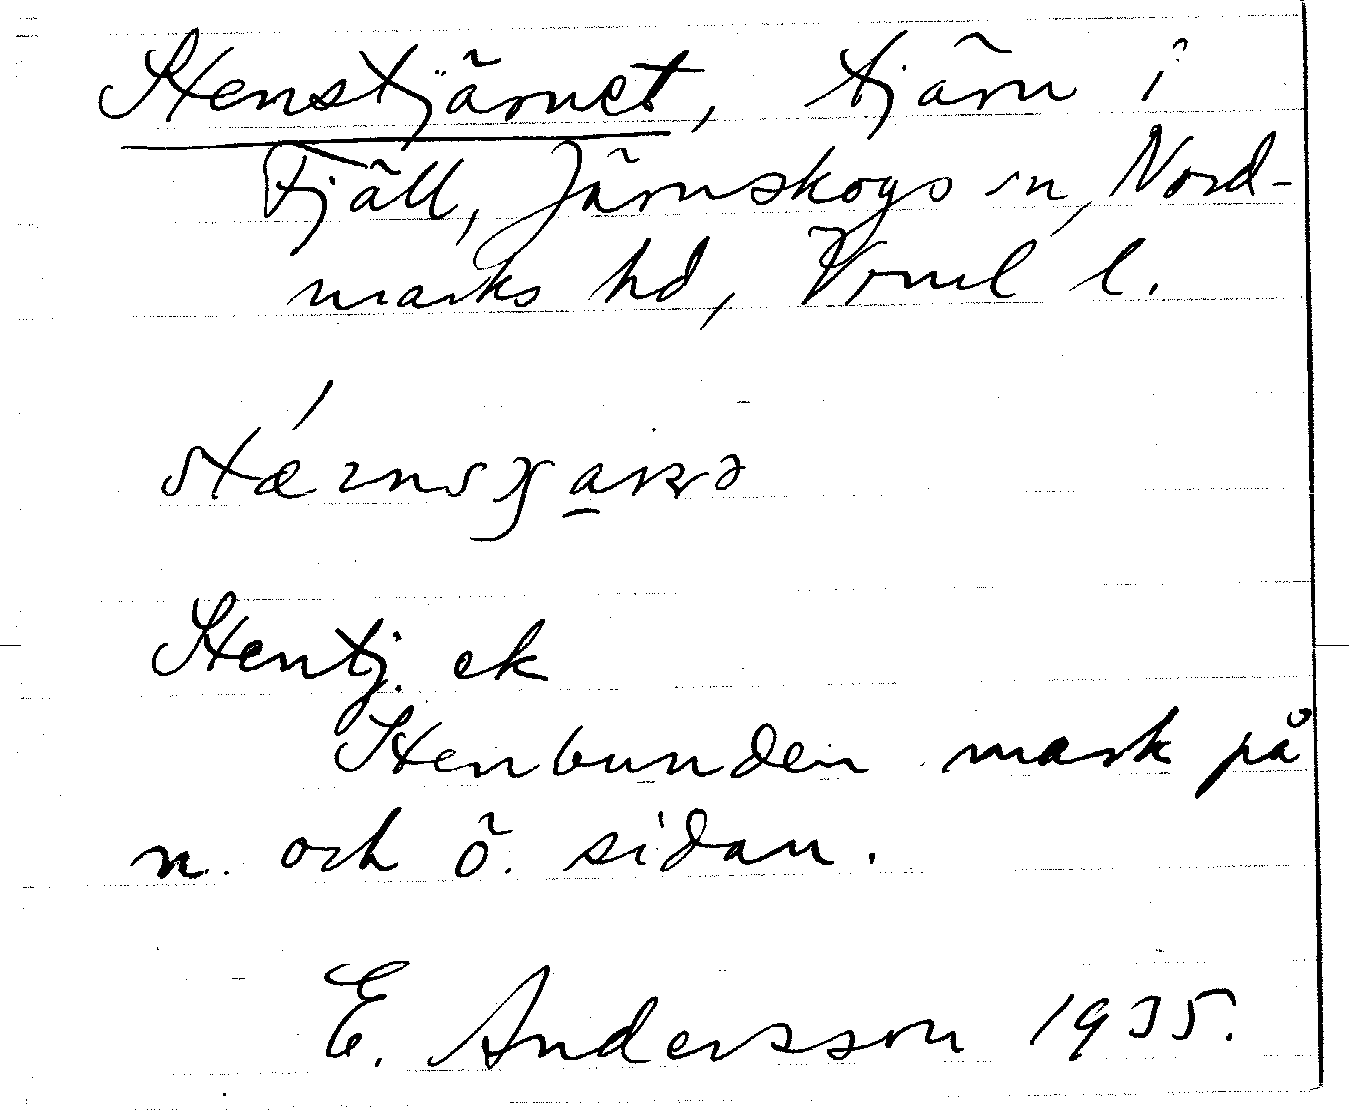 Stenstjärnet, tjärn i
Fjäll, Järnskogs sn, Nord-
marks hd, Vrml l.
Stentj. ek
Stenbunden mark på
n. och ö. sidan.
E. Andersson 1935.